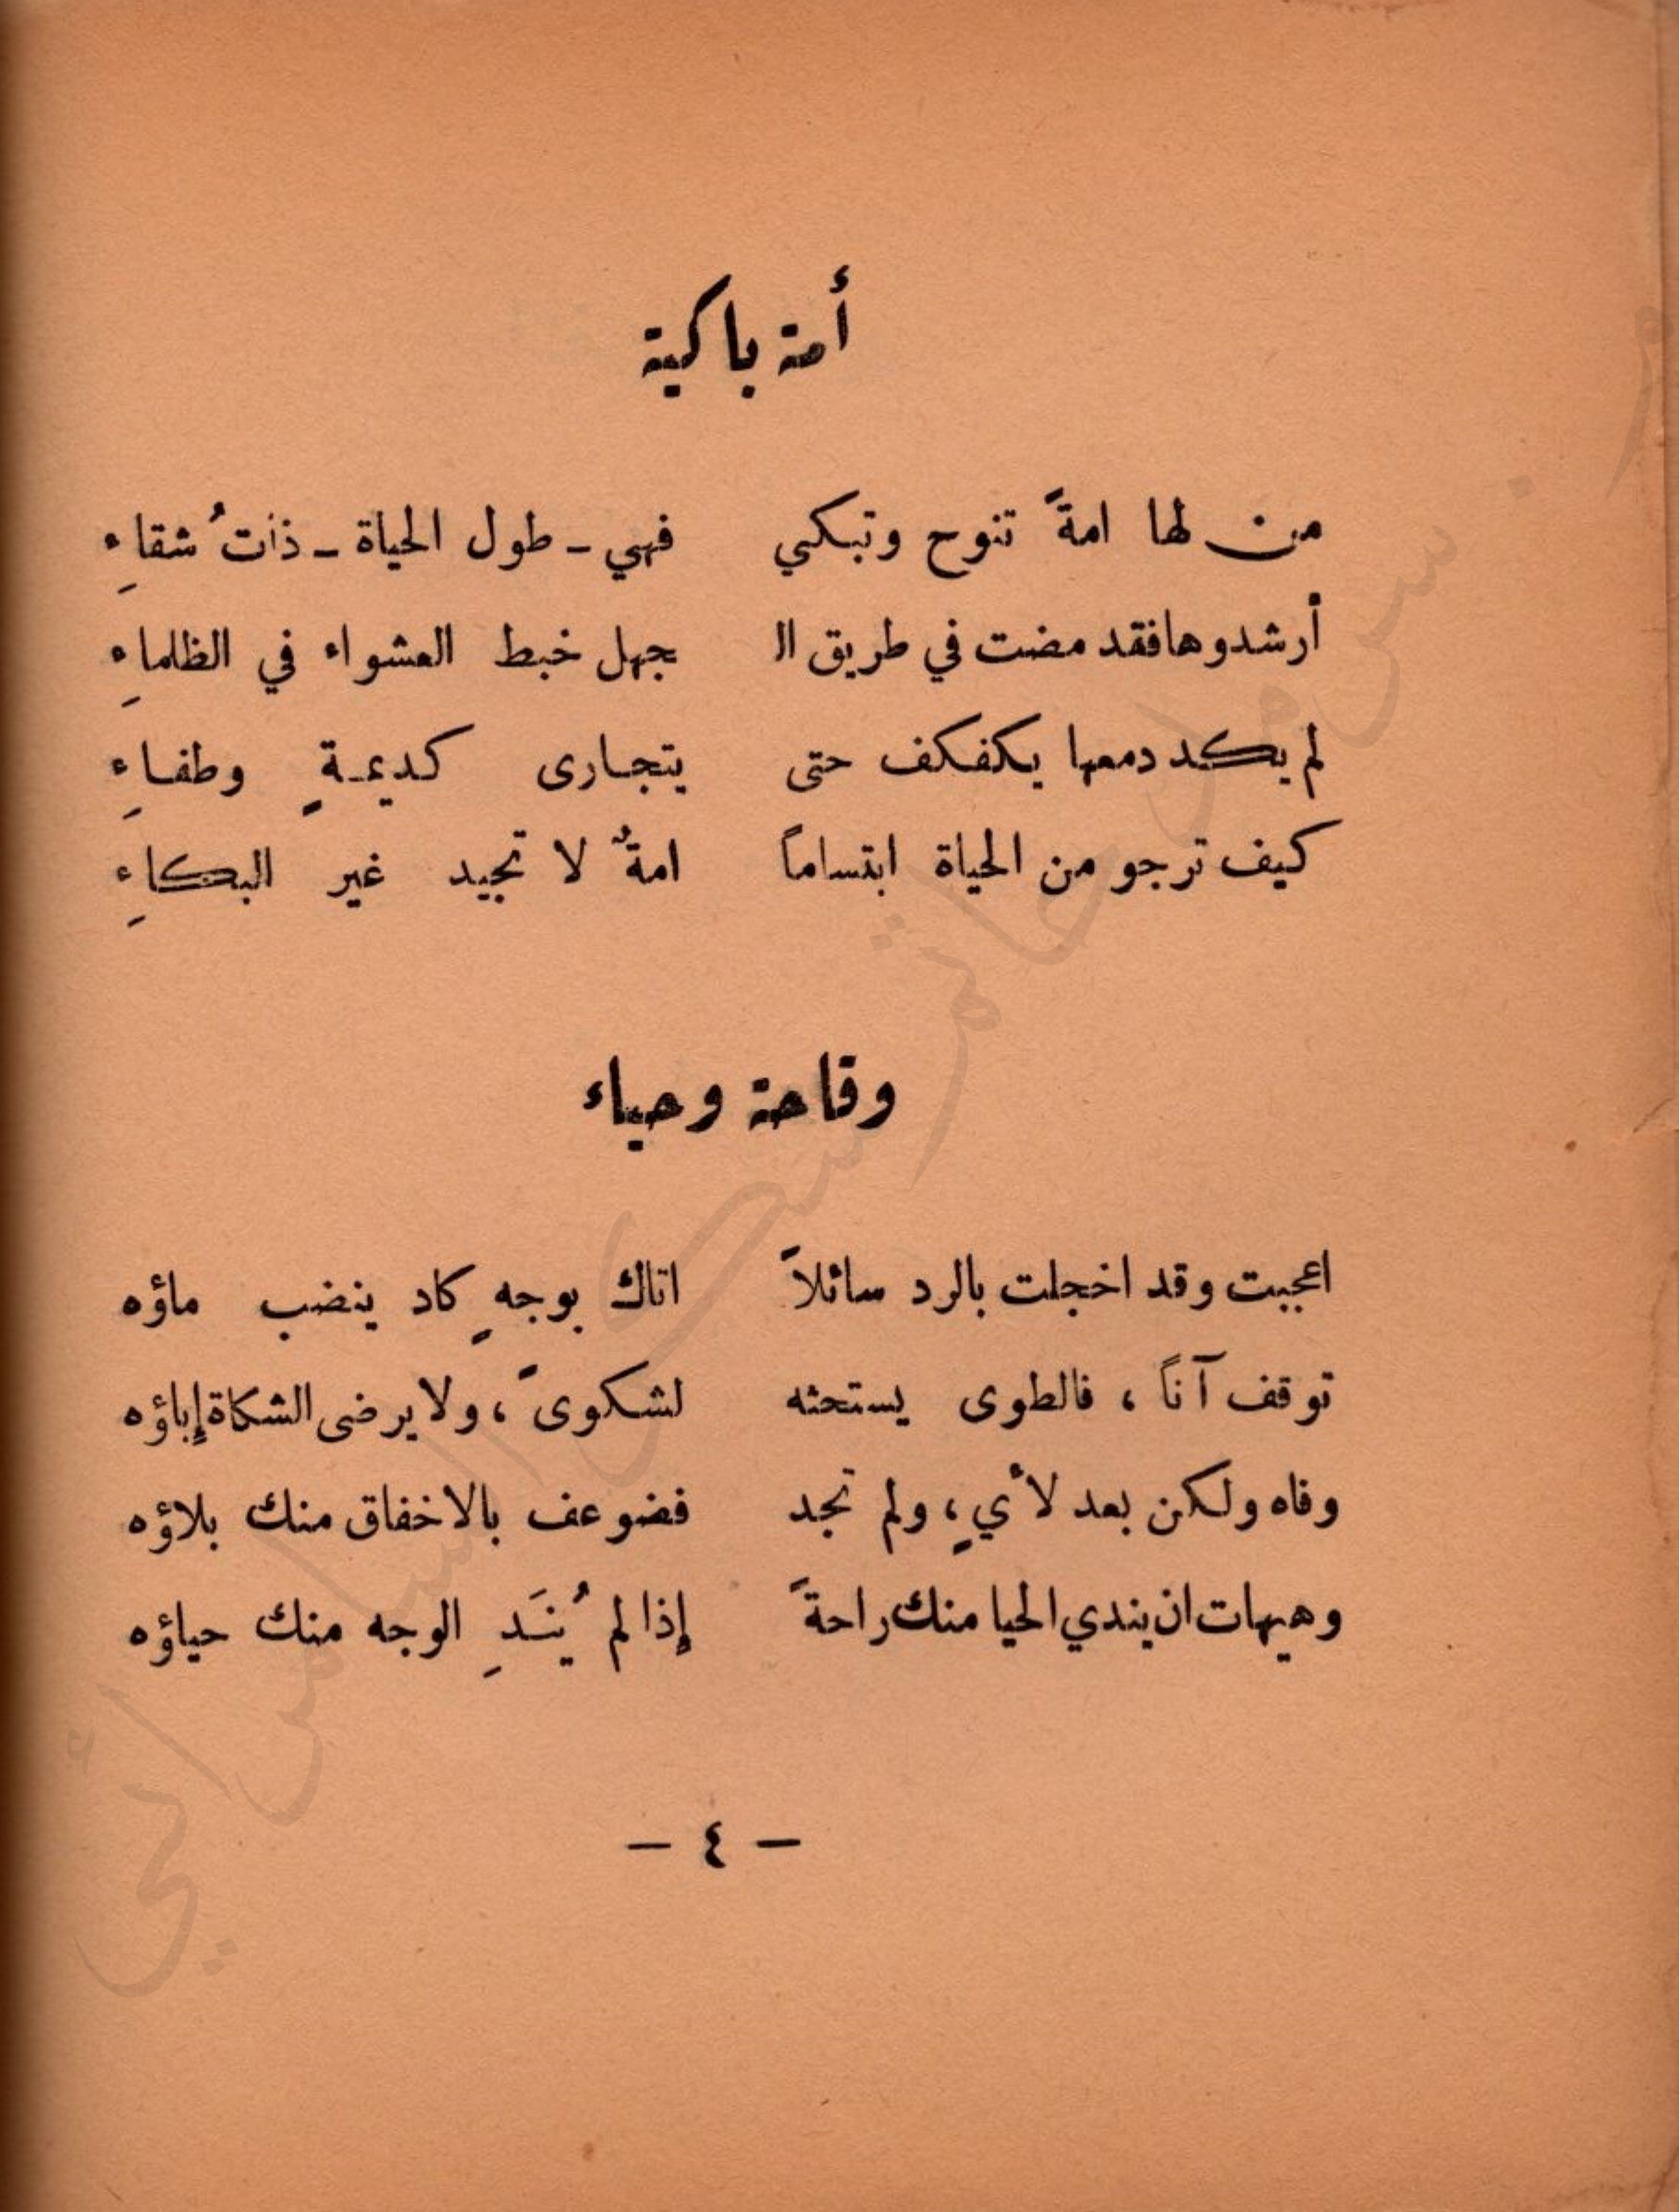 أمة باكية
من لها امةً تنوح وتبكي فهي - طول الحياة - ذاتُ شقاءِ
أرشدوها فقد مضت في طريق الـ جهل خبط العشواء في الظلماءِ
لم يكد دمعها يكفكف حتى يتجارى كديمةٍ وطفاءِ
كيف ترجو من الحياة ابتساماً امةٌ لا تجيد غير البكاءِ
وقاحة وحياء
اعجبت وقد اخجلت بالرد سائلاً اتاك بوجهٍ كاد ينضب ماؤه
توقف آناً ، فالطوى يستحثه لشكوىً ، ولا يرضى الشكاة إباؤه
وفاه ولكن بعد لأيٍ ، ولم تجد فضوعف بالاخفاق منك بلاؤه
وهيهات ان يندي الحيا منك راحةً إذا لم يُنَدِ الوجه منك حياؤه
- ٤ -